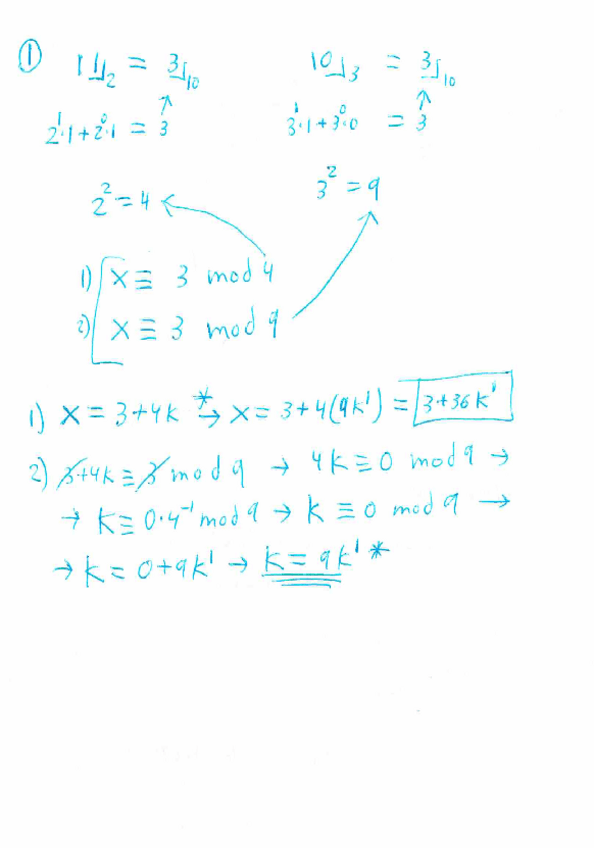 ① 11⌋₂ = 3⌋₁₀ 10⌋₃ = 3⌋₁₀
2¹·1+2⁰·1 = 3 3¹·1+3⁰·0 = 3
2² = 4 3² = 9
1) x ≡ 3 mod 4
2) x ≡ 3 mod 9
1) x = 3+4k *→ x = 3+4(9k') = 3+36k'
2) 3+4k ≡ 3 mod 9 → 4k ≡ 0 mod 9 →
→ k ≡ 0·4⁻¹ mod 9 → k ≡ 0 mod 9 →
→ k = 0+9k' → k = 9k' *